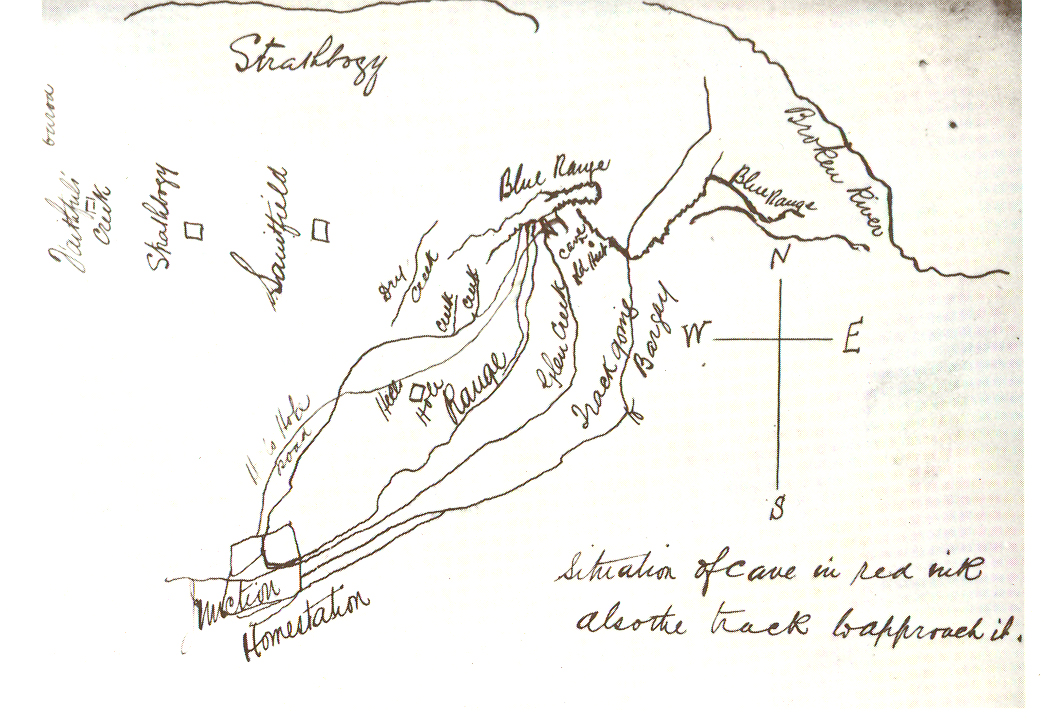 Strathbogy
Broken River
Blue Range
Blue Range
Creek
Strathbogy
Dry
Creek
Creek
Creek
Cave
Old Hut
Glen Creek
Range
Hell
Hole
Track going
Barjay
Hole
road
N
W
E
S
Junction
Homestation
Situation of cave in red ink
also the track to approach it.